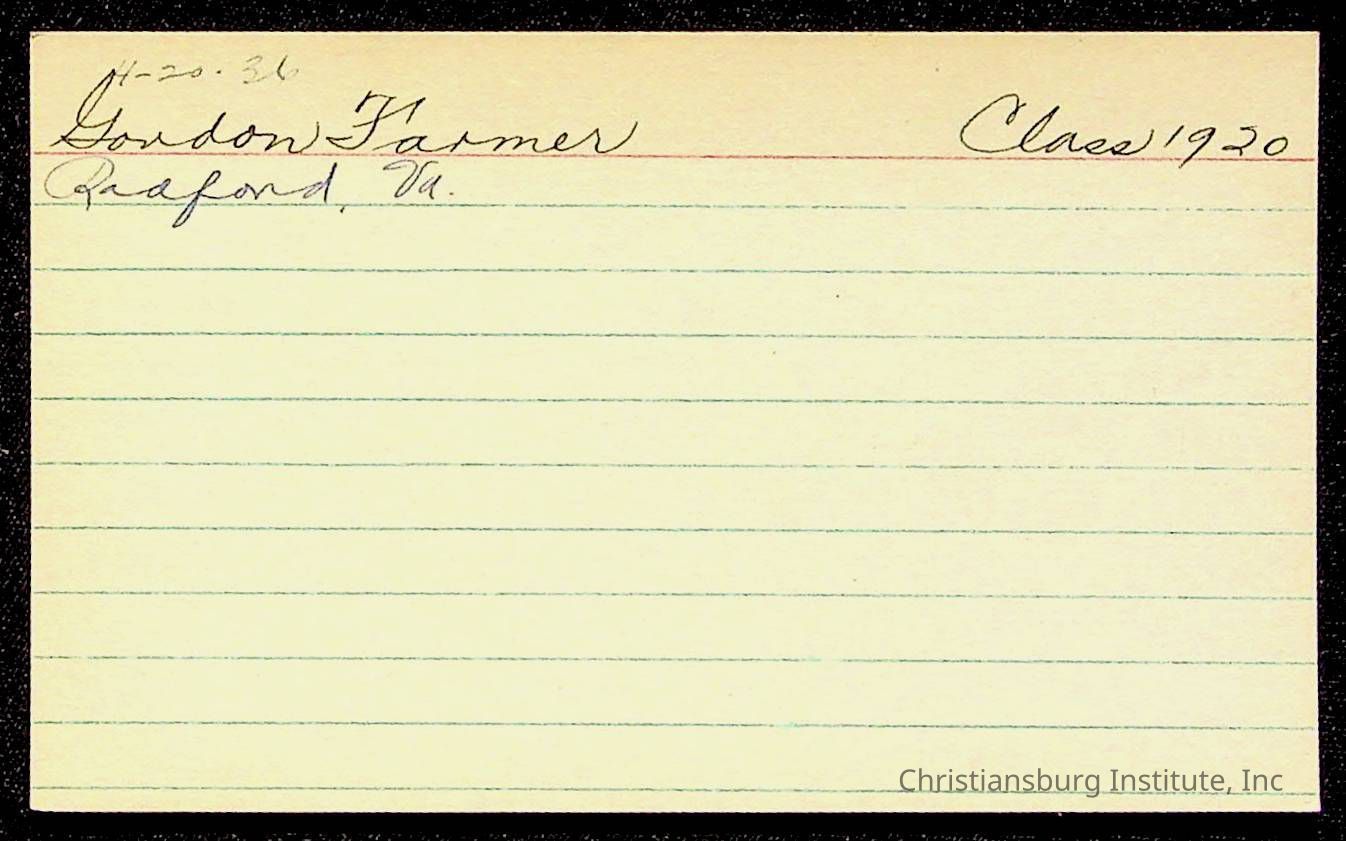 4-20-36
Gordon Farmer Class 1920
Radford, Va.
Christiansburg Institute, Inc